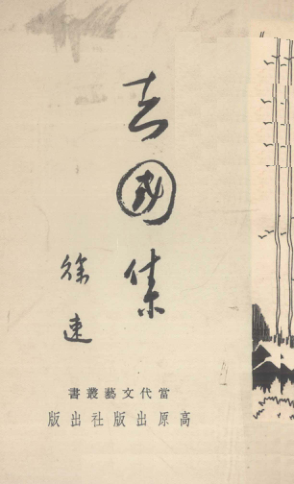 去國集
徐速
當代文藝叢書
高原出版社出版